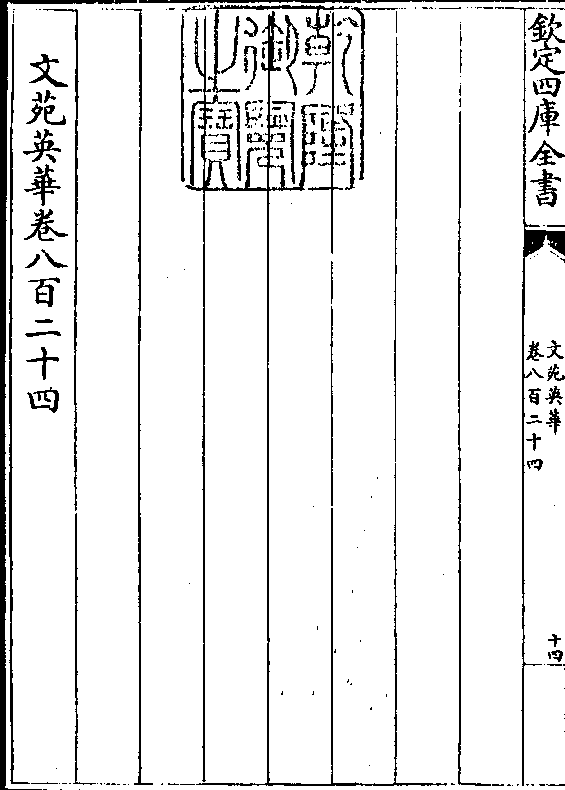 欽定四庫全書
文苑英華
卷八百二十四
十四
乾隆御覽之寶
文苑英華卷八百二十四